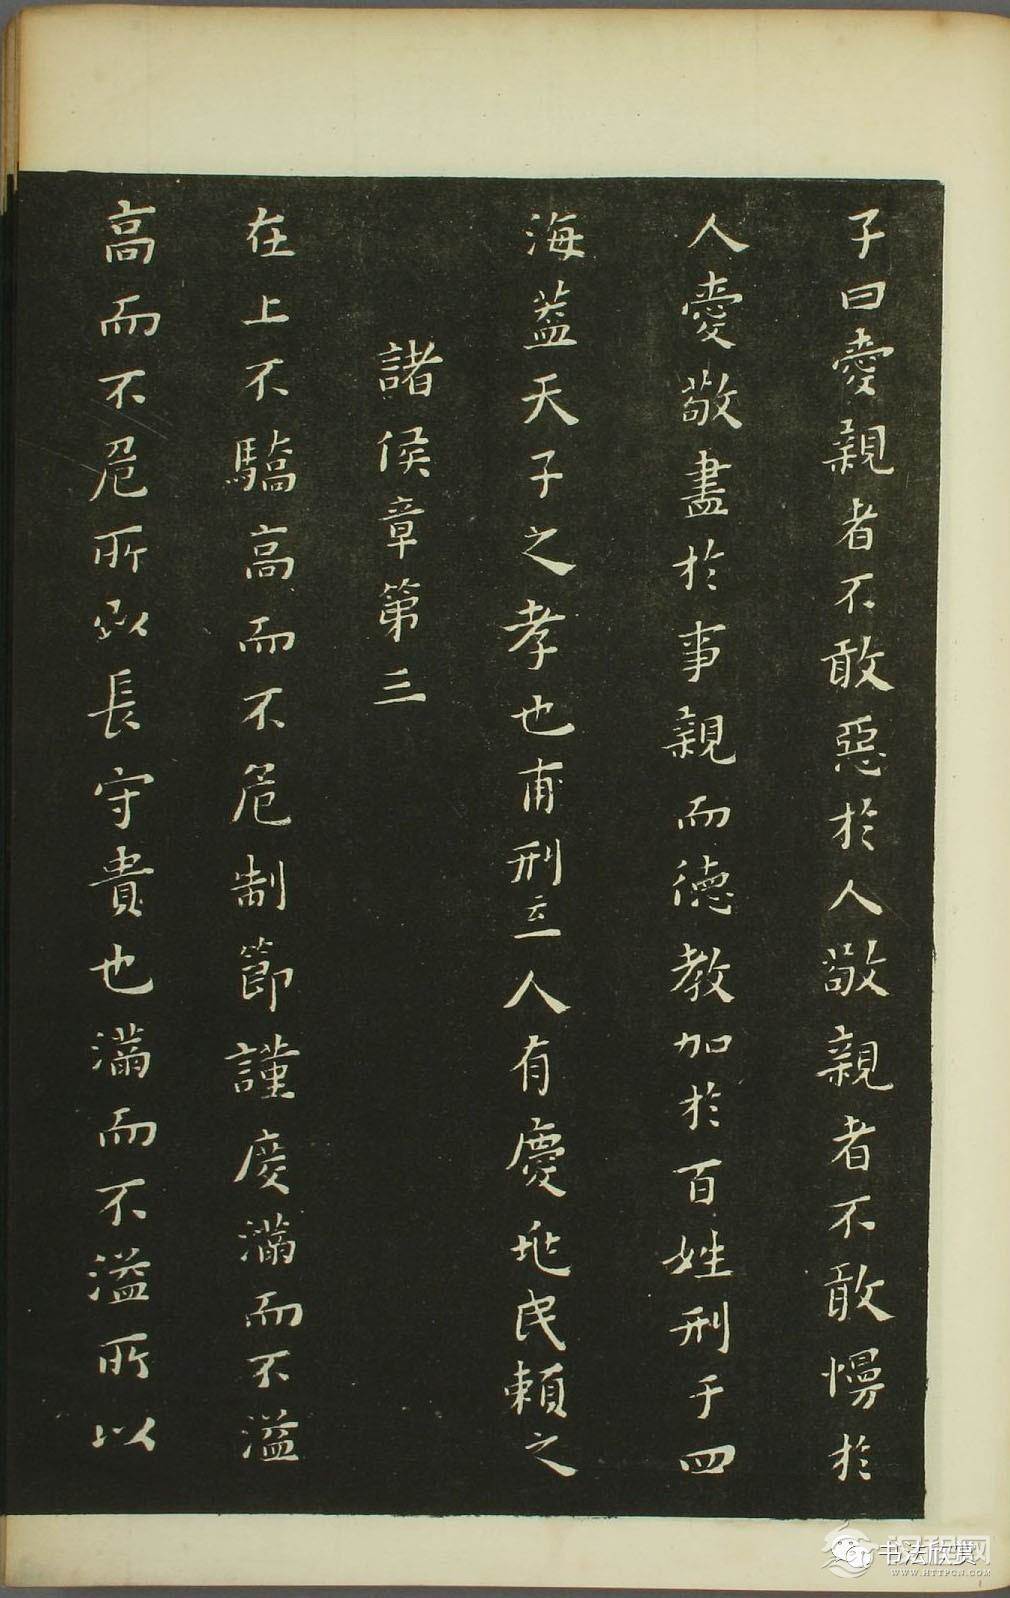 子曰愛親者不敢惡於人敬親者不敢慢於
人愛敬盡於事親而德教加於百姓刑于四
海葢天子之孝也甫刑云一人有慶兆民賴之
諸侯章第三
在上不驕高而不危制節謹度滿而不溢
高而不危所以長守貴也滿而不溢所以
书法欣赏
汉程网
WWW.HTTPCN.COM